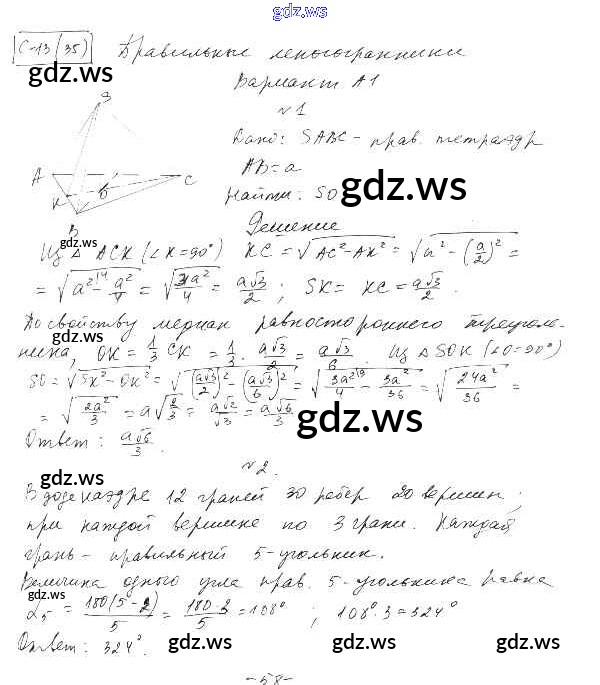 gdz.ws
С-13 (35) Правильные многогранники
Вариант А1
№1
Дано: SABC - прав. тетраэдр
AB = a
Найти: SO
S
A
C
K
O
B
gdz.ws
gdz.ws
Решение
Из △ ACK (∠K=90°) KC = √(AC² - AK²) = √(a² - (a/2)²) =
= √(a² - a²/4) = √(3a²/4) = a√3/2 ; SK = KC = a√3/2.
gdz.ws
По свойству медиан равностороннего треуголь-
ника, OK = 1/3 CK = 1/3 · a√3/2 = a√3/6. Из △ SOK (∠O=90°)
SO = √(SK² - OK²) = √((a√3/2)² - (a√3/6)²) = √(3a²/4 - 3a²/36) = √(24a²/36) =
= √(2a²/3) = a√(2/3) = a√2/√3 = a√6/3
gdz.ws
Ответ: a√6/3.
№2.
gdz.ws
В додекаэдре 12 граней 30 ребер 20 вершин;
при каждой вершине по 3 грани. Каждая
грань - правильный 5-угольник.
Величина одного угла прав. 5-угольника равна
gdz.ws
α₅ = 180(5-2)/5 = 180·3/5 = 108° ; 108°·3 = 324°
Ответ: 324°.
gdz.ws gdz.ws gdz.ws
-58-